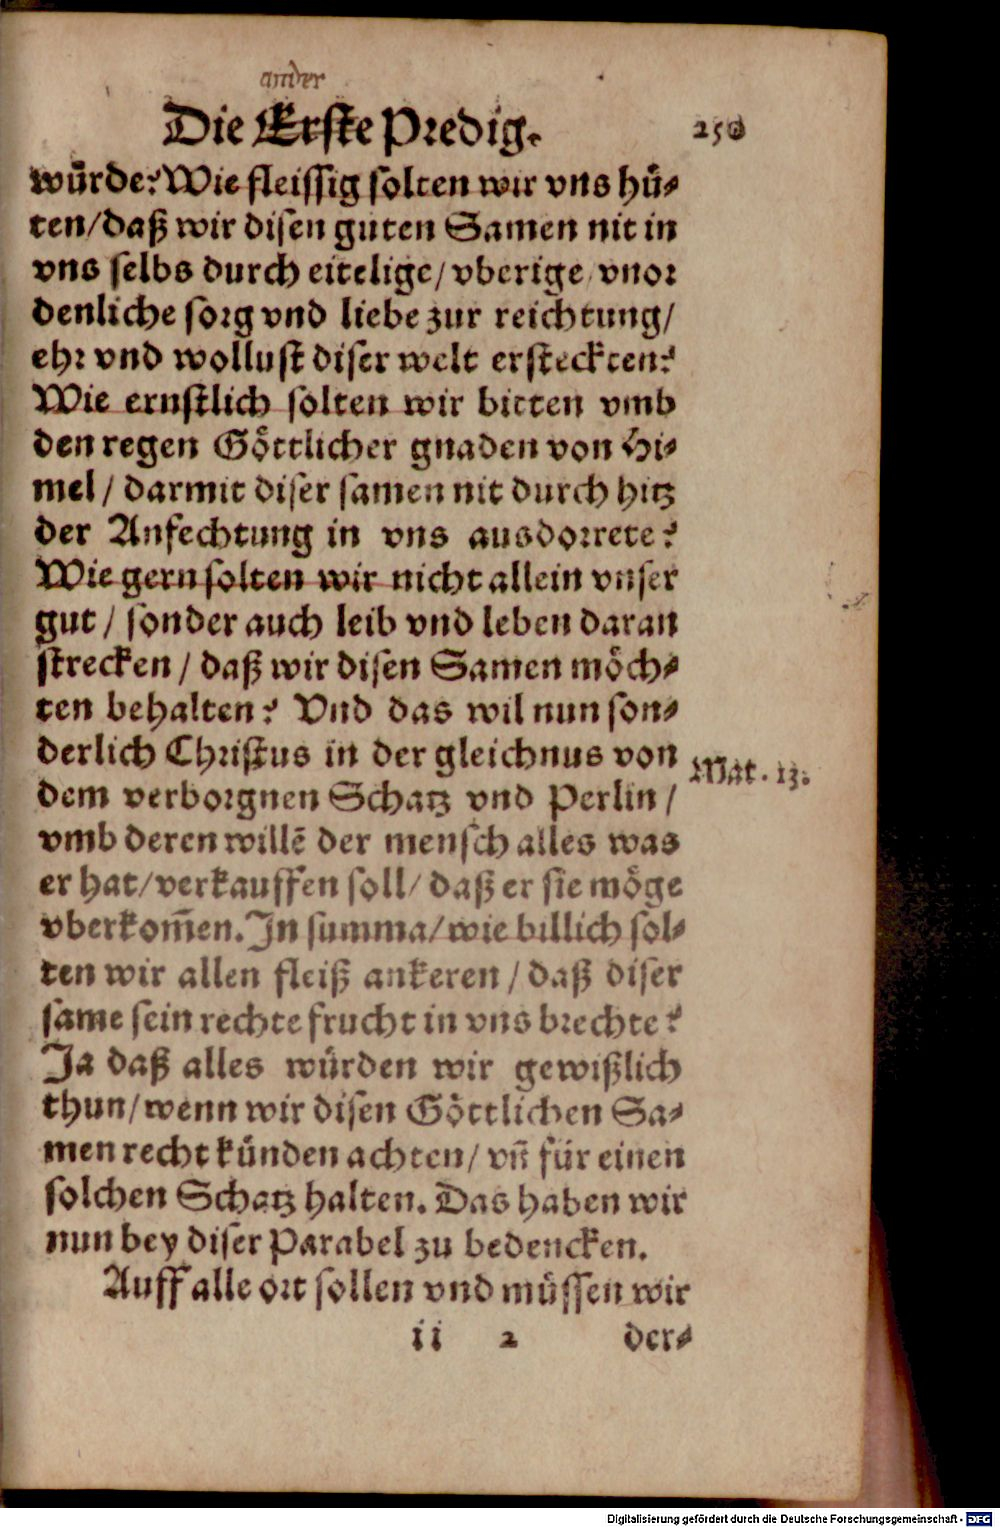 ander
Die Erste Predig. 250
würde? Wie fleissig solten wir vns hü-
ten/ daß wir disen guten Samen nit in
vns selbs durch eitelige/ vberige/ vnor
denliche sorg vnd liebe zur reichtung/
ehr vnd wollust diser welt ersteckten?
Wie ernstlich solten wir bitten vmb
den regen Göttlicher gnaden von Hi-
mel/ darmit diser samen nit durch hitz
der Anfechtung in vns ausdorrete?
Wie gern solten wir nicht allein vnser
gut/ sonder auch leib vnd leben daran
strecken/ daß wir disen Samen möch-
ten behalten? Vnd das wil nun son-
derlich Christus in der gleichnus von
Mat. 13.
dem verborgnen Schatz vnd Perlin/
vmb deren willē der mensch alles was
er hat/ verkauffen soll/ daß er sie möge
vberkom̄en. In summa/ wie billich sol-
ten wir allen fleiß ankeren/ daß diser
same sein rechte frucht in vns brechte?
Ja daß alles würden wir gewißlich
thun/ wenn wir disen Göttlichen Sa-
men recht künden achten/ vn̄ für einen
solchen Schatz halten. Das haben wir
nun bey diser Parabel zu bedencken.
Auff alle ort sollen vnd müssen wir
ii 2 der-
Digitalisierung gefördert durch die Deutsche Forschungsgemeinschaft - DFG